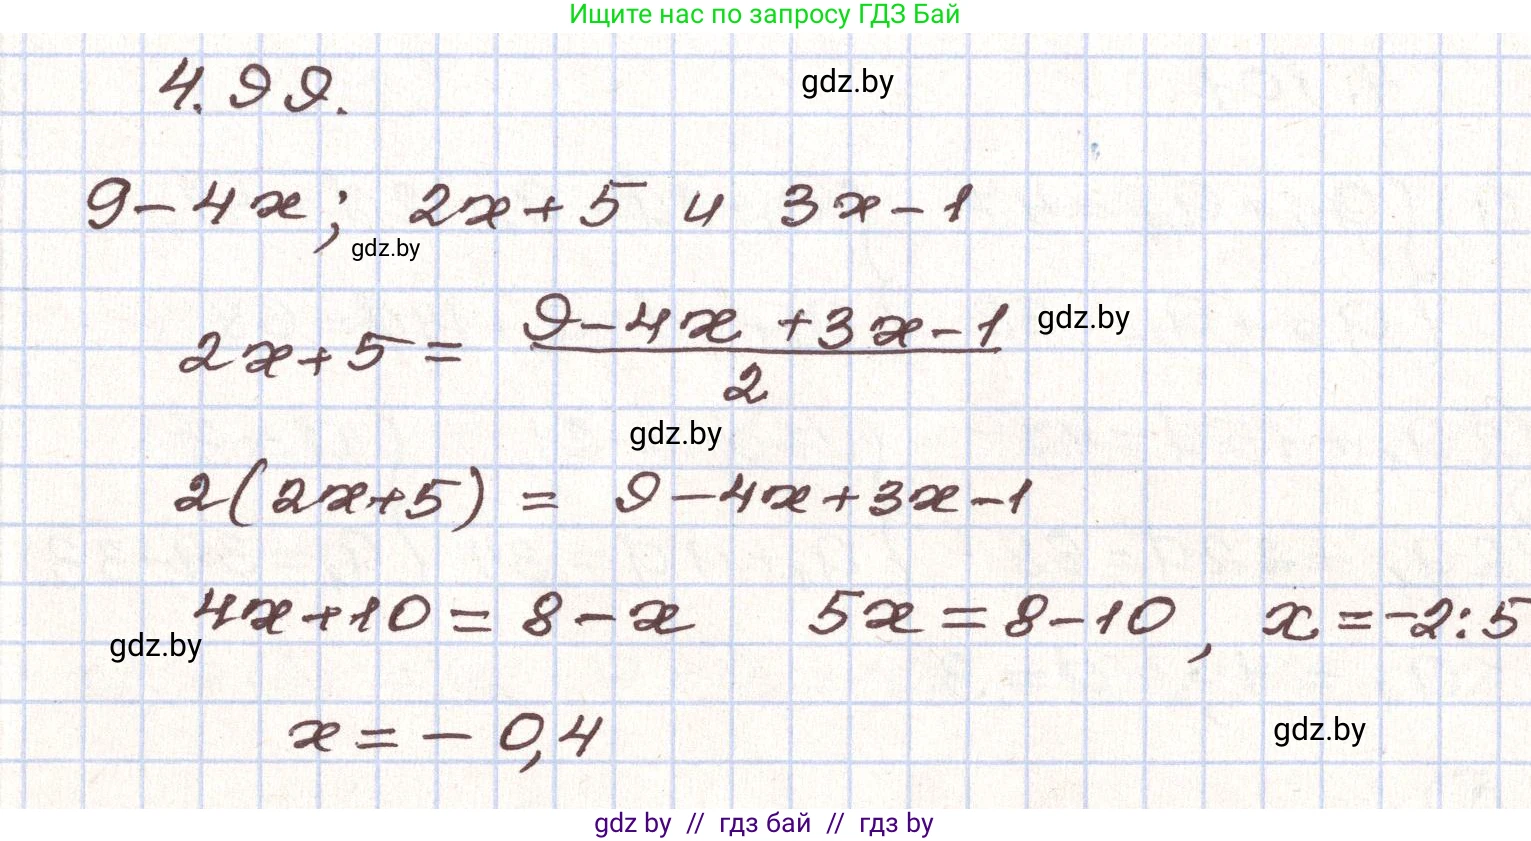 Ищите нас по запросу ГДЗ Бай
4.99.
gdz.by
9-4x; 2x+5 и 3x-1
gdz.by
2x+5 = \frac{9-4x+3x-1}{2}
gdz.by
gdz.by
2(2x+5) = 9-4x+3x-1
4x+10=8-x 5x=8-10, x=-2:5
gdz.by
x=-0,4
gdz.by
gdz by // гдз бай // гдз by